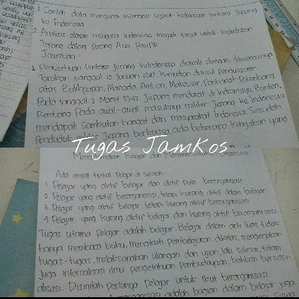 1. Contoh data mengenai informasi sejarah kedatangan tentara Jepang ke Indonesia
2. Analisis dalam mengapa Indonesia sangat besar untuk kedudukan Jepang dalam Perang Asia Pasifik
Jawaban
1. tentara Jepang ke Indonesia diawali dengan
Tarakan tanggal 10 Januari 1942 kemudian diikuti
Balikpapan, Manado, Ambon, Makassar, Pontianak, Palembang
Pada tanggal 1 Maret 1942 Jepang mendarat di Indonesia, Banten,
Rembang Pada awal militer Jepang ke Indonesia
mendapat Sambutan hangat dari masyarakat Indonesia. Sesudah
Pendudukan militer Jepang ada beberapa kebijakan yang
Tugas JamKos
Belajar dan
Ada empat tipikal Pelajar di sekolah
1. Pelajar yang aktif belajar dan aktif pula berorganisasi
2. Pelajar yang aktif berorganisasi, tetapi kurang aktif dalam belajar
3. Pelajar yang aktif belajar tetapi kurang aktif berorganisasi
4. Pelajar yang kurang aktif belajar dan kurang aktif berorganisasi
Tugas utama Pelajar adalah belajar. Belajar dalam arti luas, tidak
hanya membaca buku, mengikuti Pembelajaran di kelas, mengerjakan
tugas-tugas, melaksanakan ulangan dan ujian, lalu selesai, tetapi
juga internalisasi ilmu pengetahuan
Disinilah perlunya Pelajar untuk ikut berorganisasi
berorganisasi adalah bagian dalam belajar yang